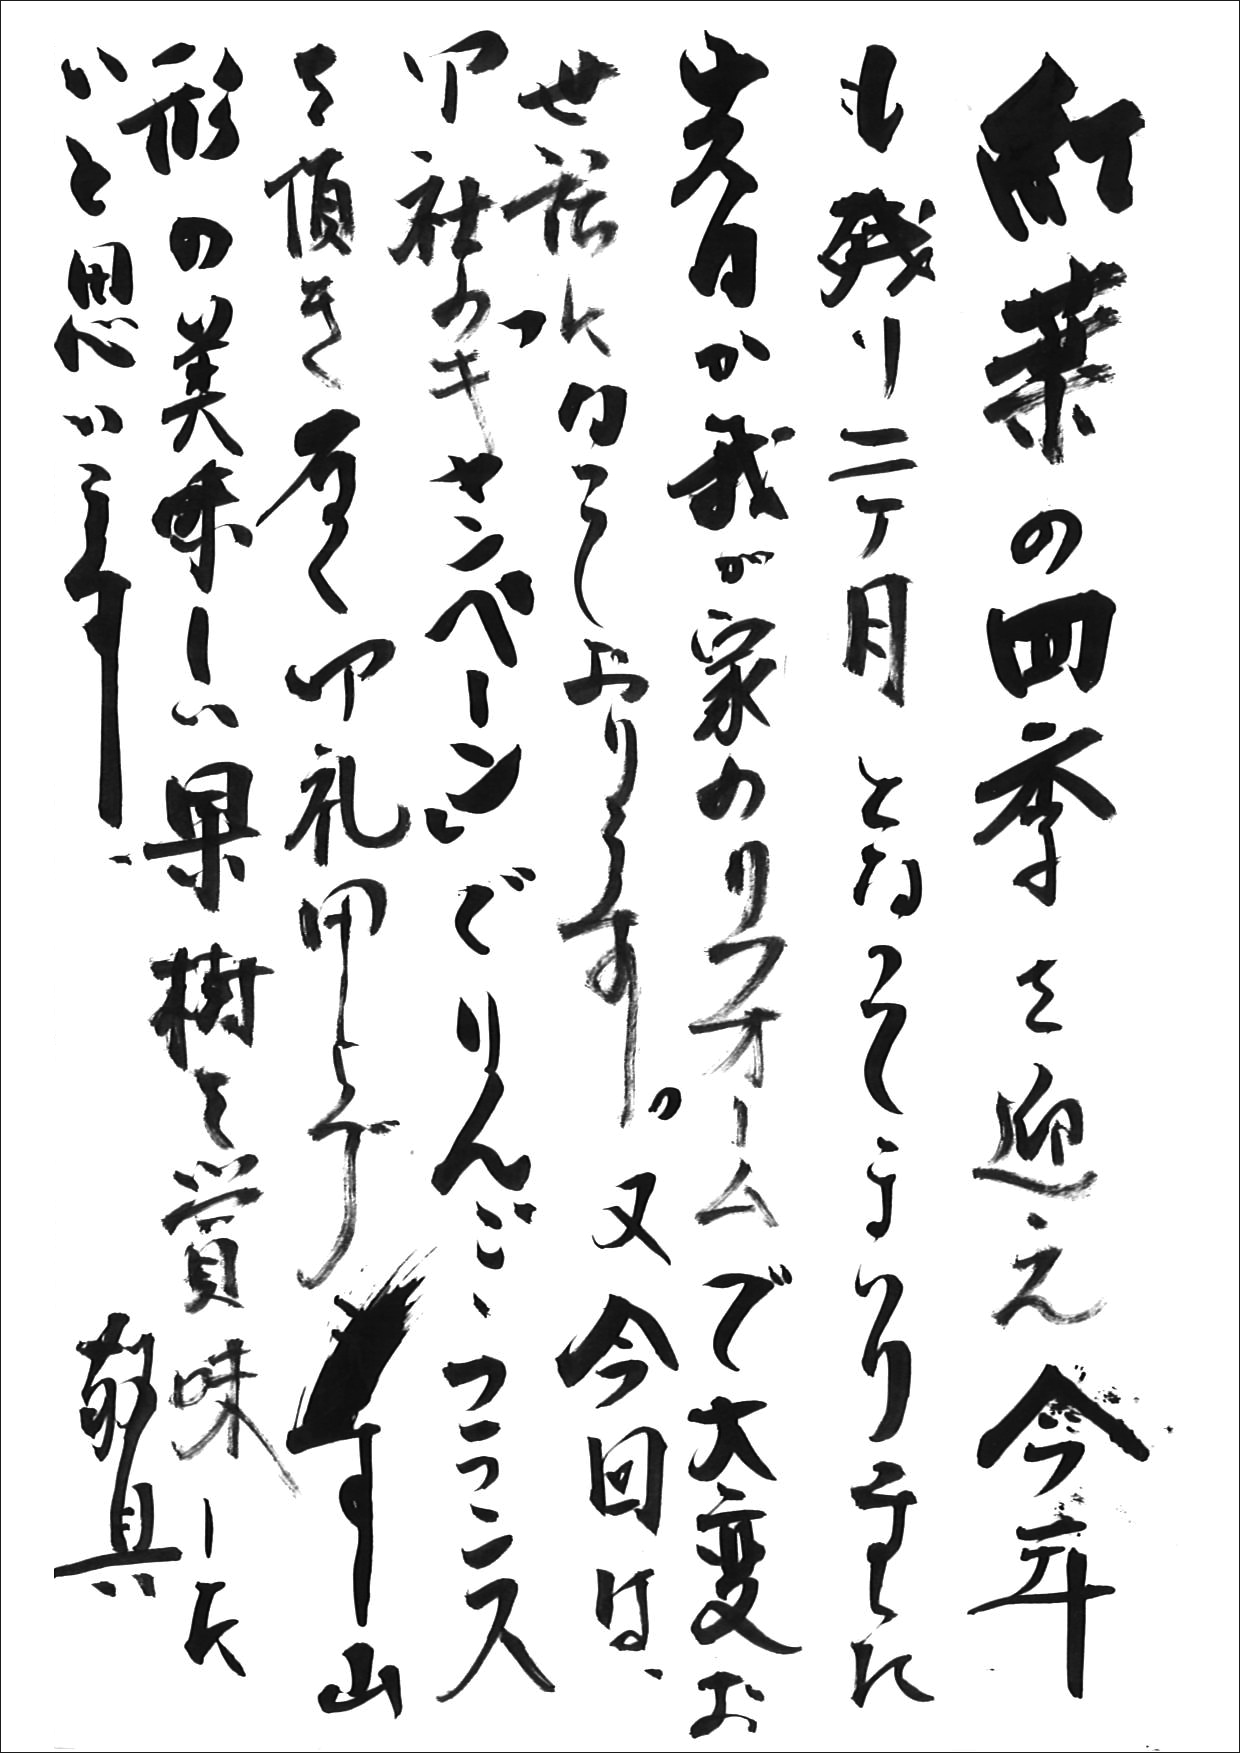 紅葉の四季を迎え今年
も残り二ケ月となってまいりました
先日か我が家のリフォームで大変お
世話になっております。又今回は、
御社のキャンペーンでりんご、フランス
を頂き厚く御礼申し上げます 山
形の美味しい果樹を賞味した
いと思います。 敬具